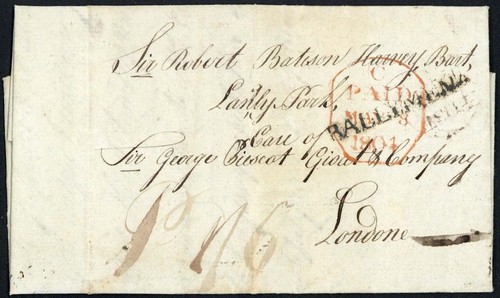 Sir Robert Bateson Harvey Bart,
Lanly Park,
Care of
Sir George Prescot Groat & Company
Londone
C
PAID
1804
BALLYMENA